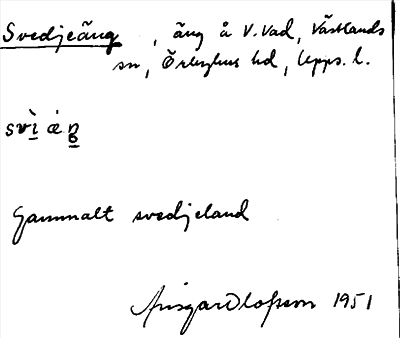 Svedjeäng, äng å V. Vad, Västlands
sn, Örbyhus hd, Upps. l.
svì áŋ
Gammalt svedjeland
Ansgar Olofsson 1951